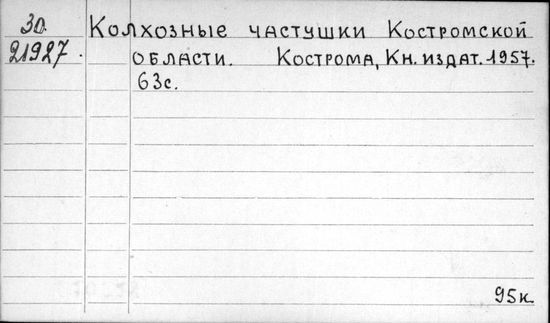 30. Колхозные частушки Костромской
21927. области. Кострома, Кн. издат. 1957.
63с.
95к.